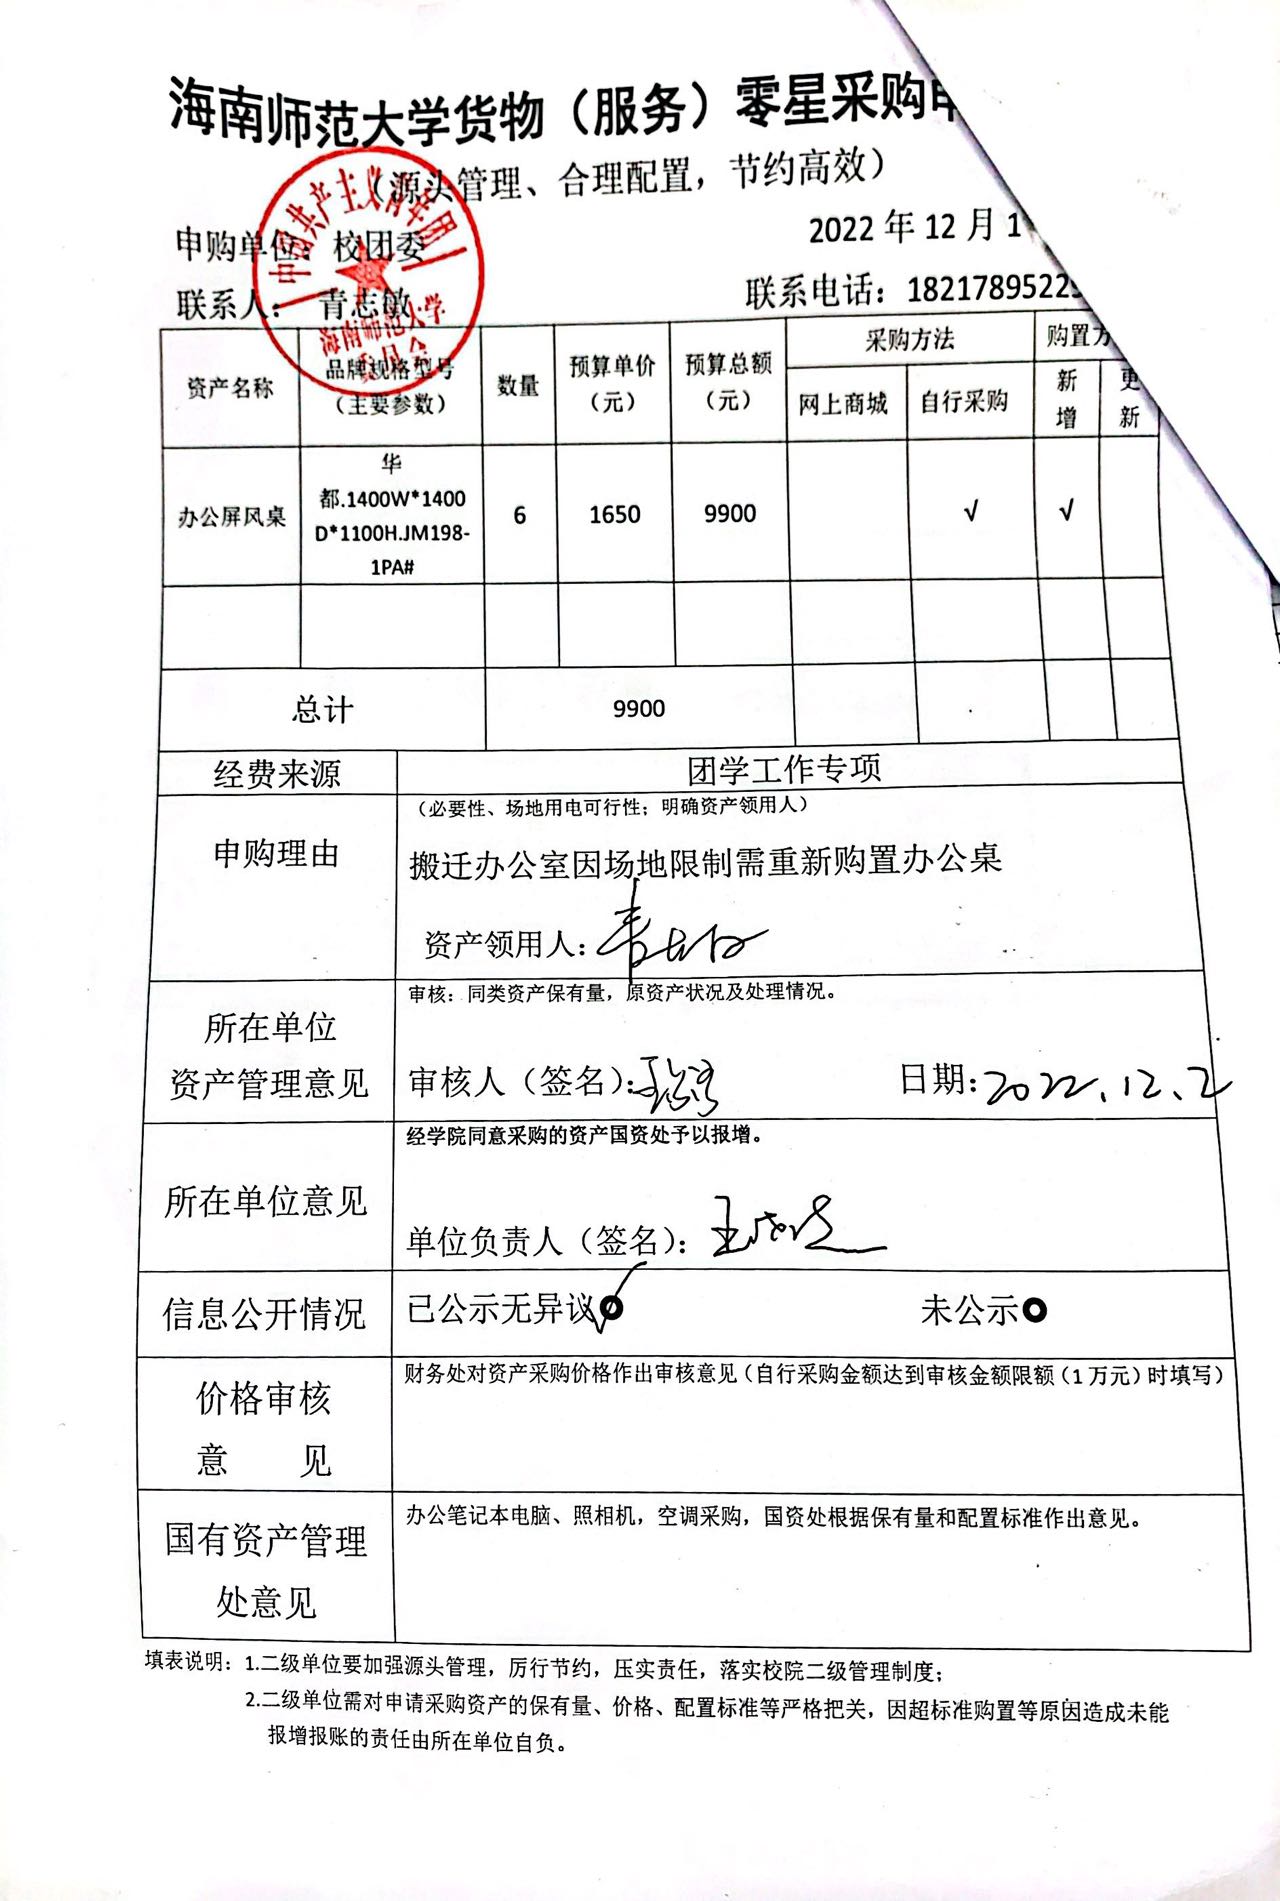 海南师范大学货物（服务）零星采购申
（源头管理、合理配置，节约高效）
申购单位：校团委
2022 年 12 月 1
联系人： 青志敏
联系电话：1821789522
中国共产主义青年团
海南师范大学
委员会
资产名称
品牌规格型号
（主要参数）
数量
预算单价
（元）
预算总额
（元）
采购方法
网上商城
自行采购
购置方
新
增
更
新
办公屏风桌
华
都.1400W*1400
D*1100H.JM198-
1PA#
6
1650
9900
√
√
总计
9900
经费来源
团学工作专项
申购理由
（必要性、场地用电可行性；明确资产领用人）
搬迁办公室因场地限制需重新购置办公桌
资产领用人：青志敏
所在单位
资产管理意见
审核：同类资产保有量，原资产状况及处理情况。
审核人（签名）：
日期：2022.12.2
所在单位意见
经学院同意采购的资产国资处予以报增。
单位负责人（签名）：
信息公开情况
已公示无异议
未公示
价格审核
意 见
财务处对资产采购价格作出审核意见（自行采购金额达到审核金额限额（1 万元）时填写）
国有资产管理
处意见
办公笔记本电脑、照相机，空调采购，国资处根据保有量和配置标准作出意见。
填表说明：1.二级单位要加强源头管理，厉行节约，压实责任，落实校院二级管理制度；
2.二级单位需对申请采购资产的保有量、价格、配置标准等严格把关，因超标准购置等原因造成未能
报增报账的责任由所在单位自负。